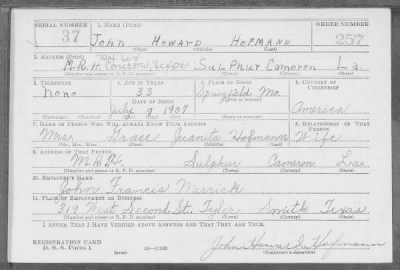 SERIAL NUMBER 1. NAME (Print) ORDER NUMBER
37 JOHN HOWARD HOFMANN 257
(First) (Middle) (Last)
2. ADDRESS (Print)
M.R.H. Conroe, Texas Sulphur Cameron La.
(Number and street or R. F. D. number) (Town) (County) (State)
3. TELEPHONE 4. AGE IN YEARS 5. PLACE OF BIRTH 6. COUNTRY OF CITIZENSHIP
None 33 Springfield Mo
DATE OF BIRTH
July 9 1907 America
(Mo.) (Day) (Yr.)
7. NAME OF PERSON WHO WILL ALWAYS KNOW YOUR ADDRESS 8. RELATIONSHIP OF THAT PERSON
Mrs. Grace Juanita Hofmann Wife
(Mr., Mrs., Miss) (First) (Middle) (Last)
9. ADDRESS OF THAT PERSON
Sulphur Cameron
(Number and street or R. F. D. number) (Town) (County) (State)
10. EMPLOYER'S NAME
John Francis Merrick
11. PLACE OF EMPLOYMENT OR BUSINESS
319 West Second St. Tyler Smith Texas
(Number and street or R. F. D. number) (Town) (County) (State)
I AFFIRM THAT I HAVE VERIFIED ABOVE ANSWERS AND THAT THEY ARE TRUE.
REGISTRATION CARD
D. S. S. Form 1 (over) John Howard Hofmann
(Registrant's signature)